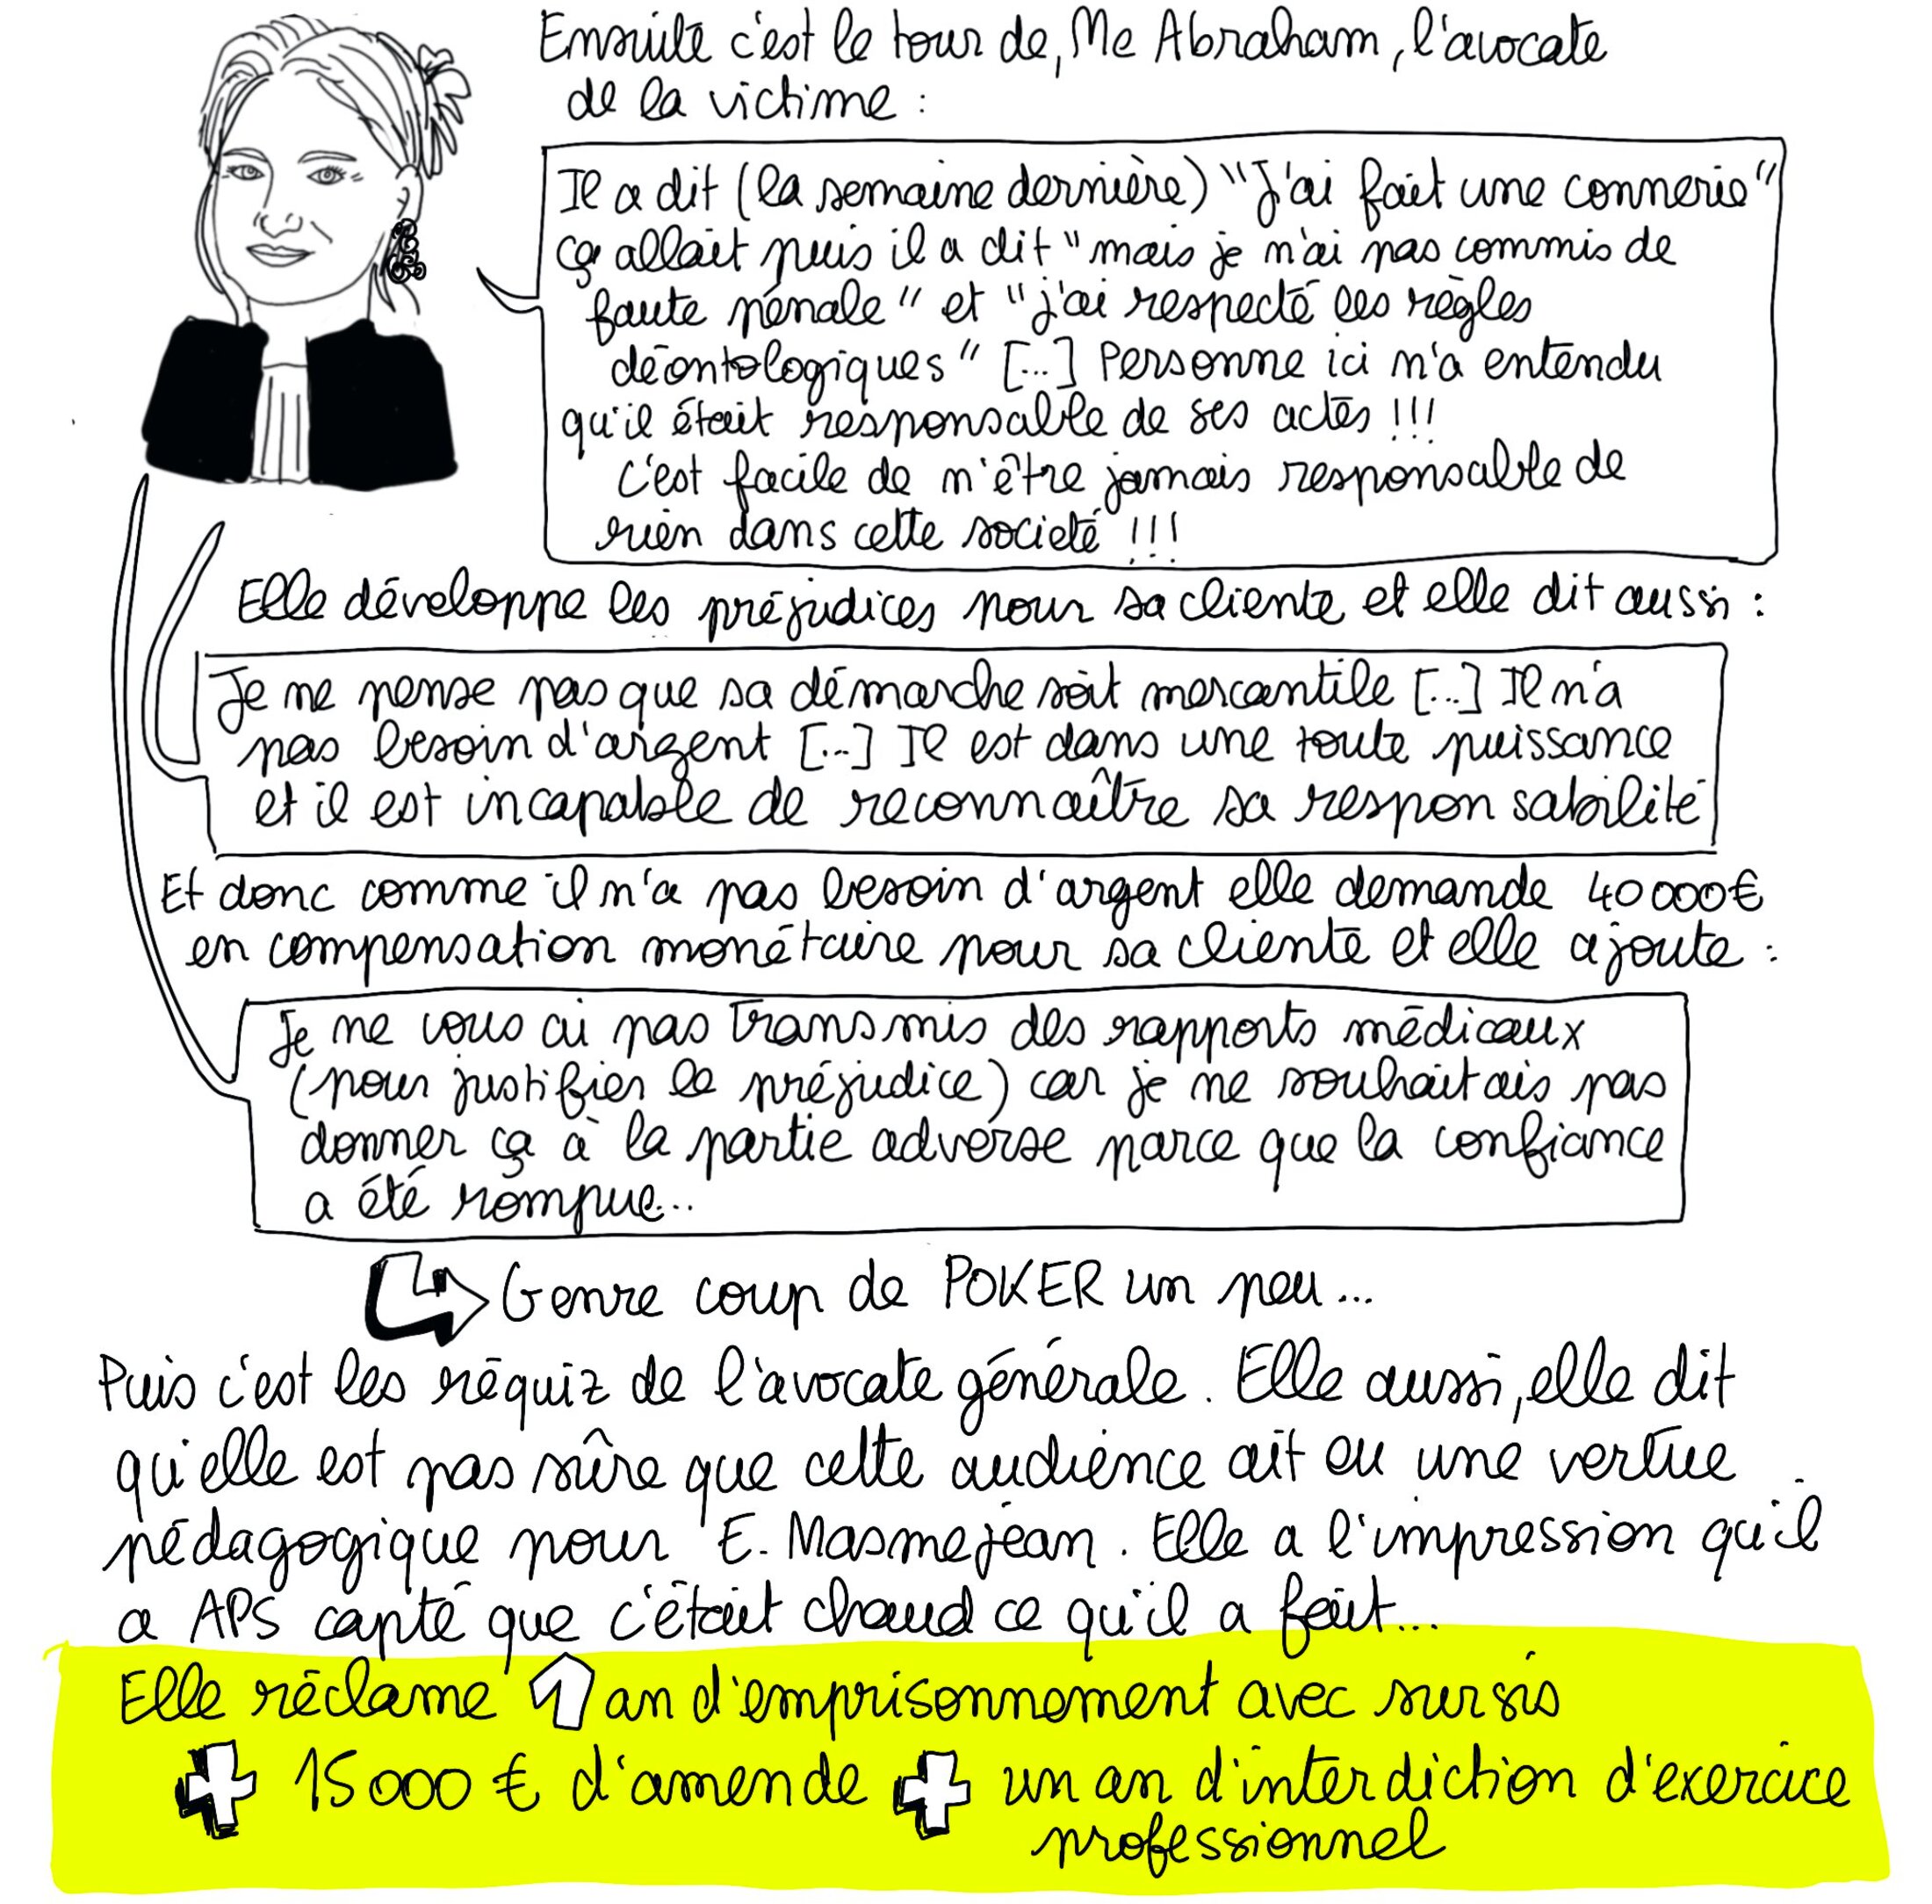 Ensuite c'est le tour de, Me Abraham, l'avocate
de la victime :
Il a dit (la semaine dernière) "J'ai fait une connerie"
ça allait puis il a dit "mais je n'ai pas commis de
faute pénale" et "j'ai respecté les règles
déontologiques" [...] Personne ici n'a entendu
qu'il était responsable de ses actes !!!
C'est facile de n'être jamais responsable de
rien dans cette société !!!
Elle développe les préjudices pour sa cliente et elle dit aussi :
Je ne pense pas que sa démarche soit mercantile [...] Il n'a
pas besoin d'argent [...] Il est dans une toute puissance
et il est incapable de reconnaître sa responsabilité
Et donc comme il n'a pas besoin d'argent elle demande 40 000€
en compensation monétaire pour sa cliente et elle ajoute :
Je ne vous ai pas transmis des rapports médicaux
(pour justifier le préjudice) car je ne souhaitais pas
donner ça à la partie adverse parce que la confiance
a été rompue...
Genre coup de POKER un peu...
Puis c'est les réquiz de l'avocate générale. Elle aussi, elle dit
qu'elle est pas sûre que cette audience ait eu une vertue
pédagogique pour E. Masmejean. Elle a l'impression qu'il
a APS capté que c'était chaud ce qu'il a fait...
Elle réclame 1 an d'emprisonnement avec sursis
+ 15 000 € d'amende + un an d'interdiction d'exercice
professionnel